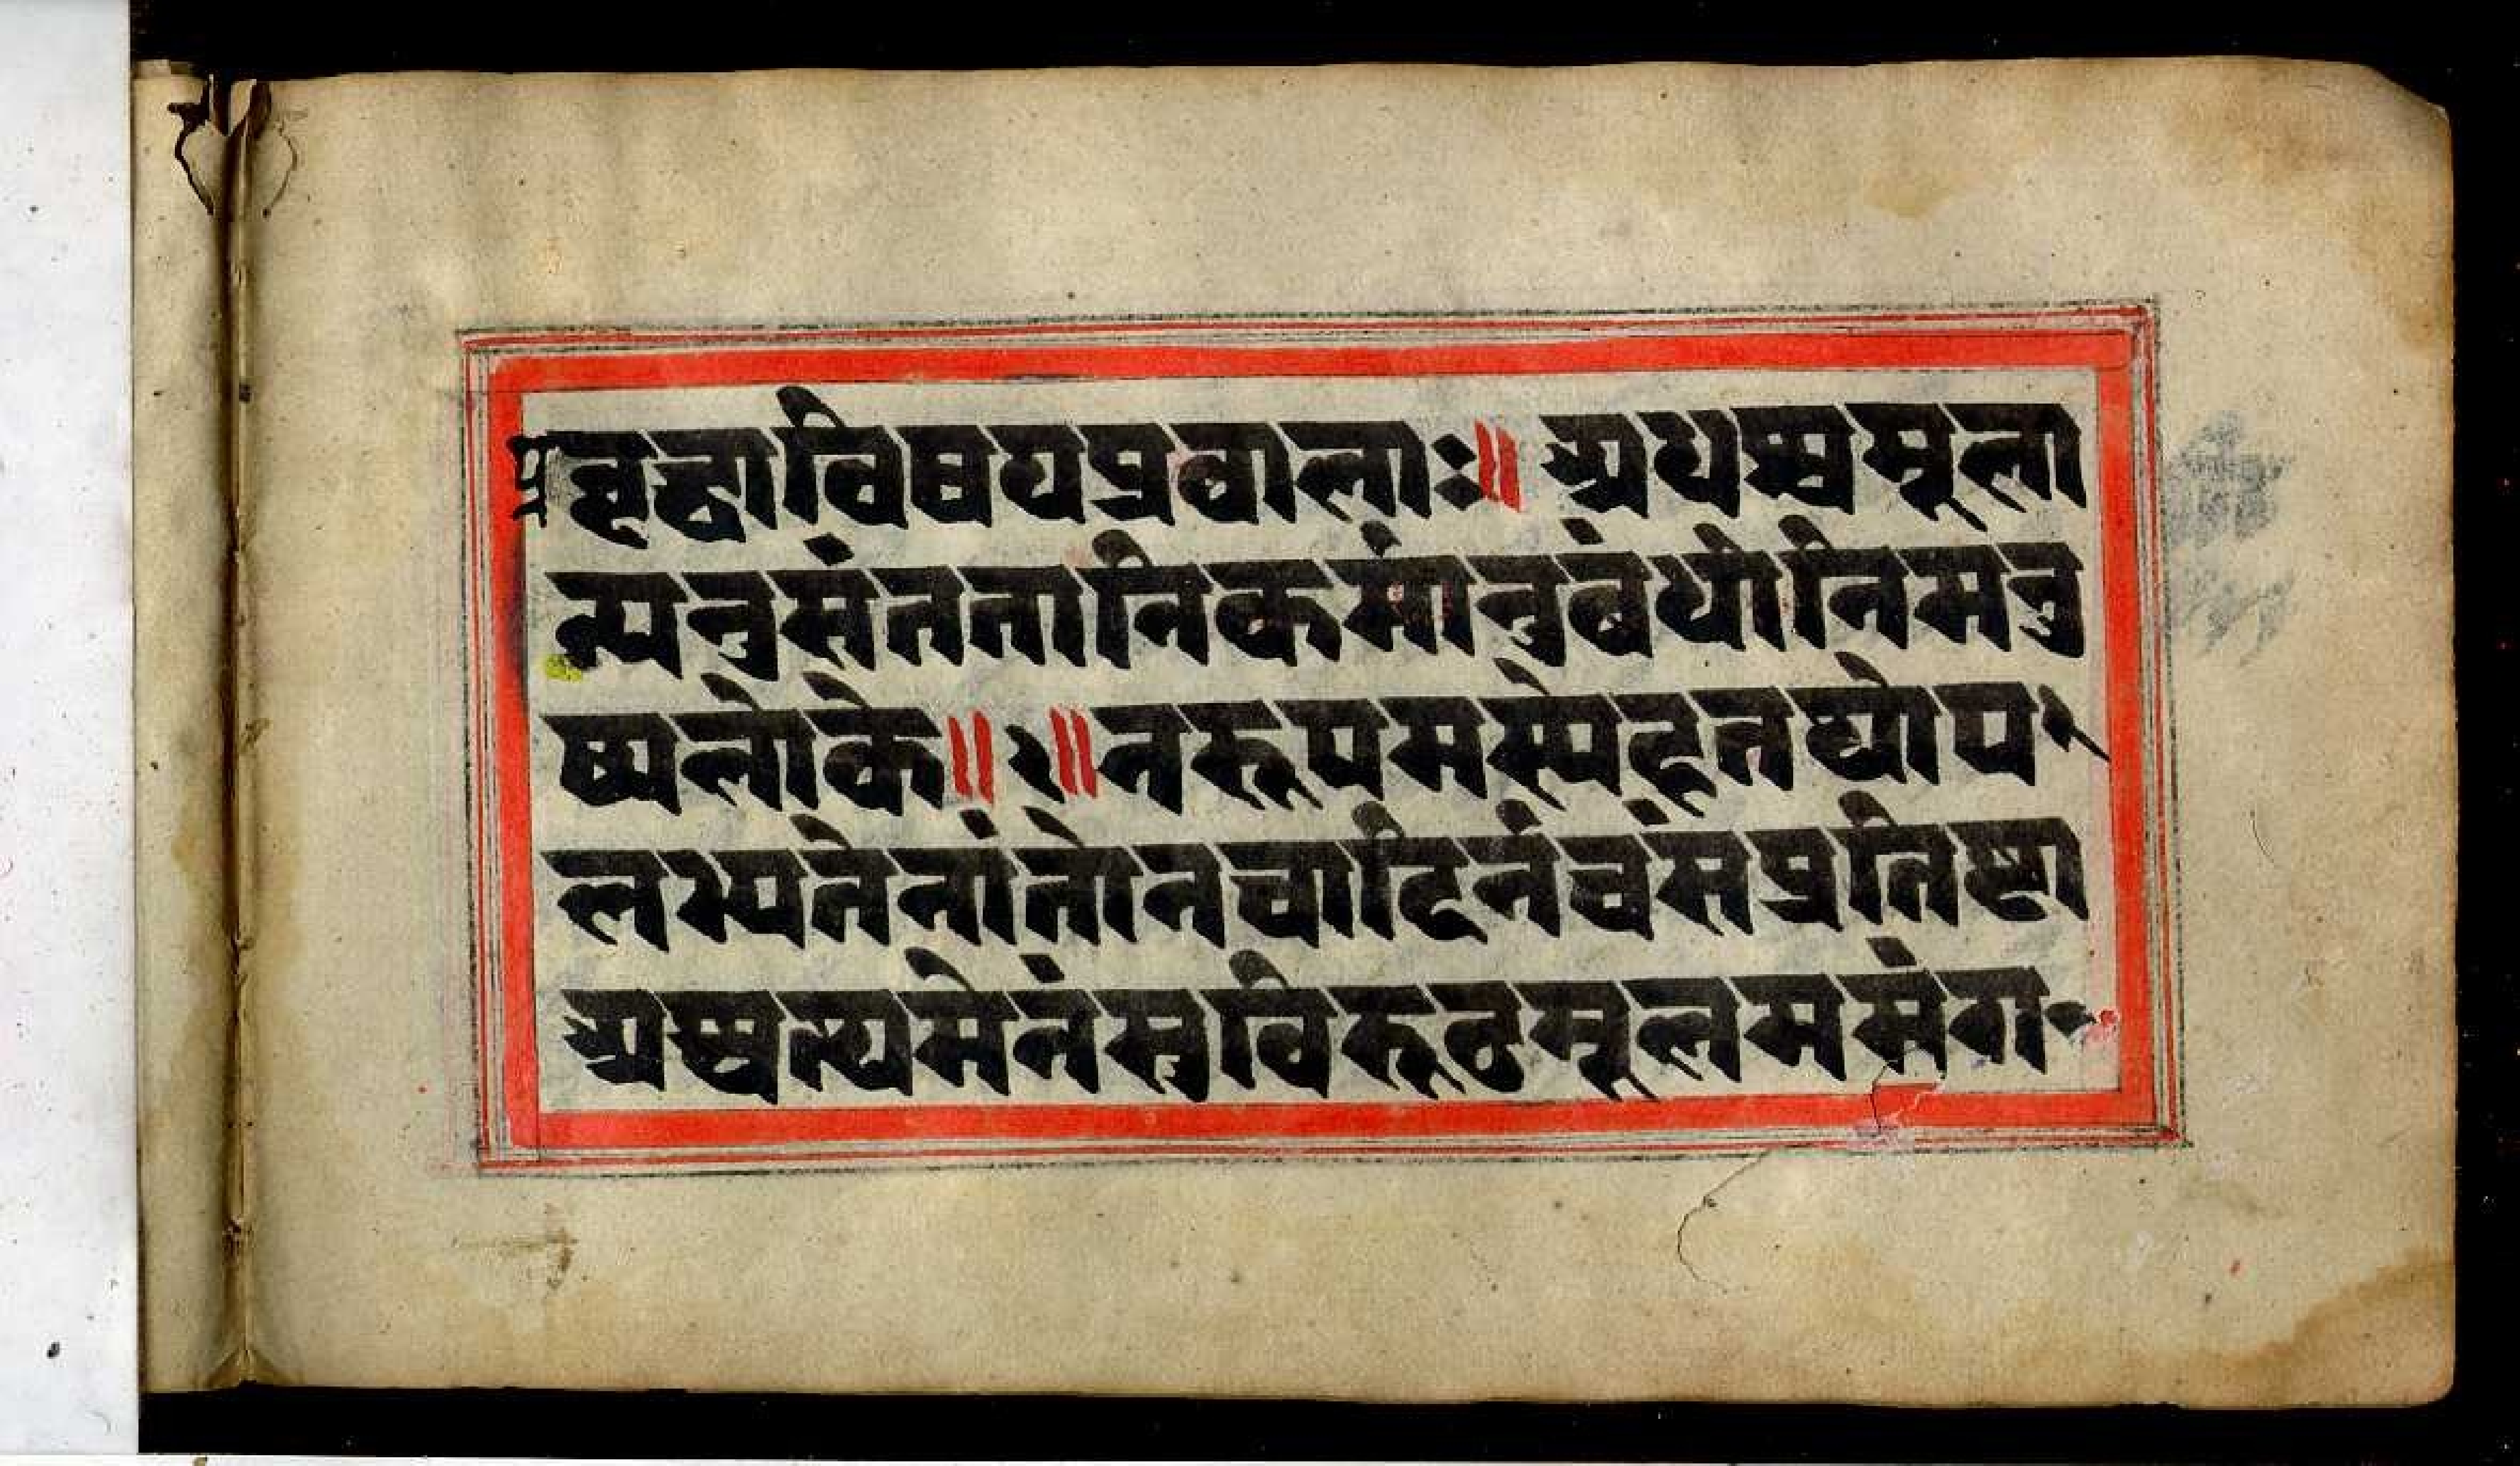 प्रवृद्धाविषयप्रवालाः॥ अधश्चमूला
न्यनुसंततानिकर्मानुबंधीनिमनु
ष्यलोके॥२॥नरूपमस्येहतथोप
लभ्यतेनांतोनचादिर्नचसंप्रतिष्टा
अश्वत्थमेनंसुविरूढमूलमसंग